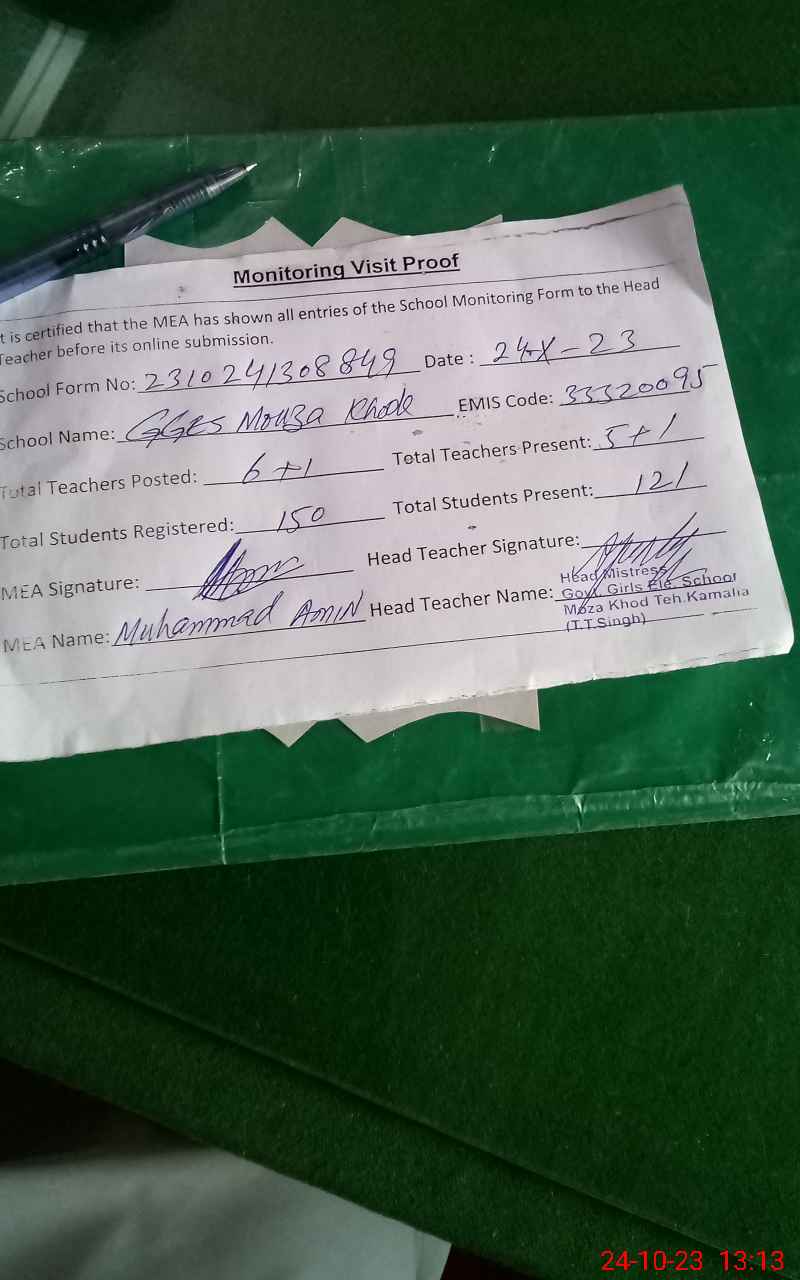 Monitoring Visit Proof
t is certified that the MEA has shown all entries of the School Monitoring Form to the Head
Teacher before its online submission.
School Form No: 2310241308849 Date : 24-X-23
School Name: GGES Mouza Khode EMIS Code: 33320095
Total Teachers Posted: 6+1 Total Teachers Present: 5+1
Total Students Registered: 150 Total Students Present: 121
MEA Signature: Head Teacher Signature:
MEA Name: Muhammad AMIN Head Teacher Name:
Head Mistress
Govt. Girls Ele. School
Moza Khod Teh.Kamalia
(T.T.Singh)
24-10-23 13:13